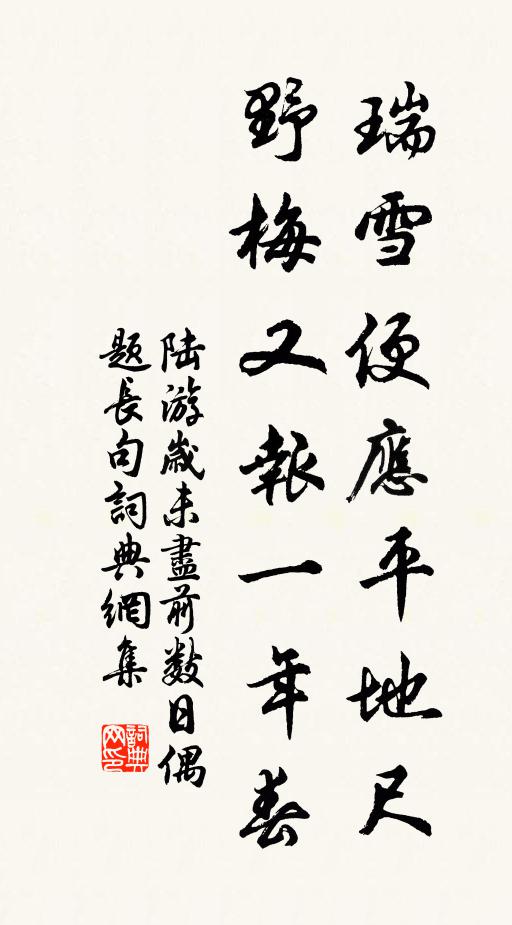 瑞雪便應平地尺
野梅又報一年春
陸游歲未盡前數日偶
題長句詞典網集
詞典网印